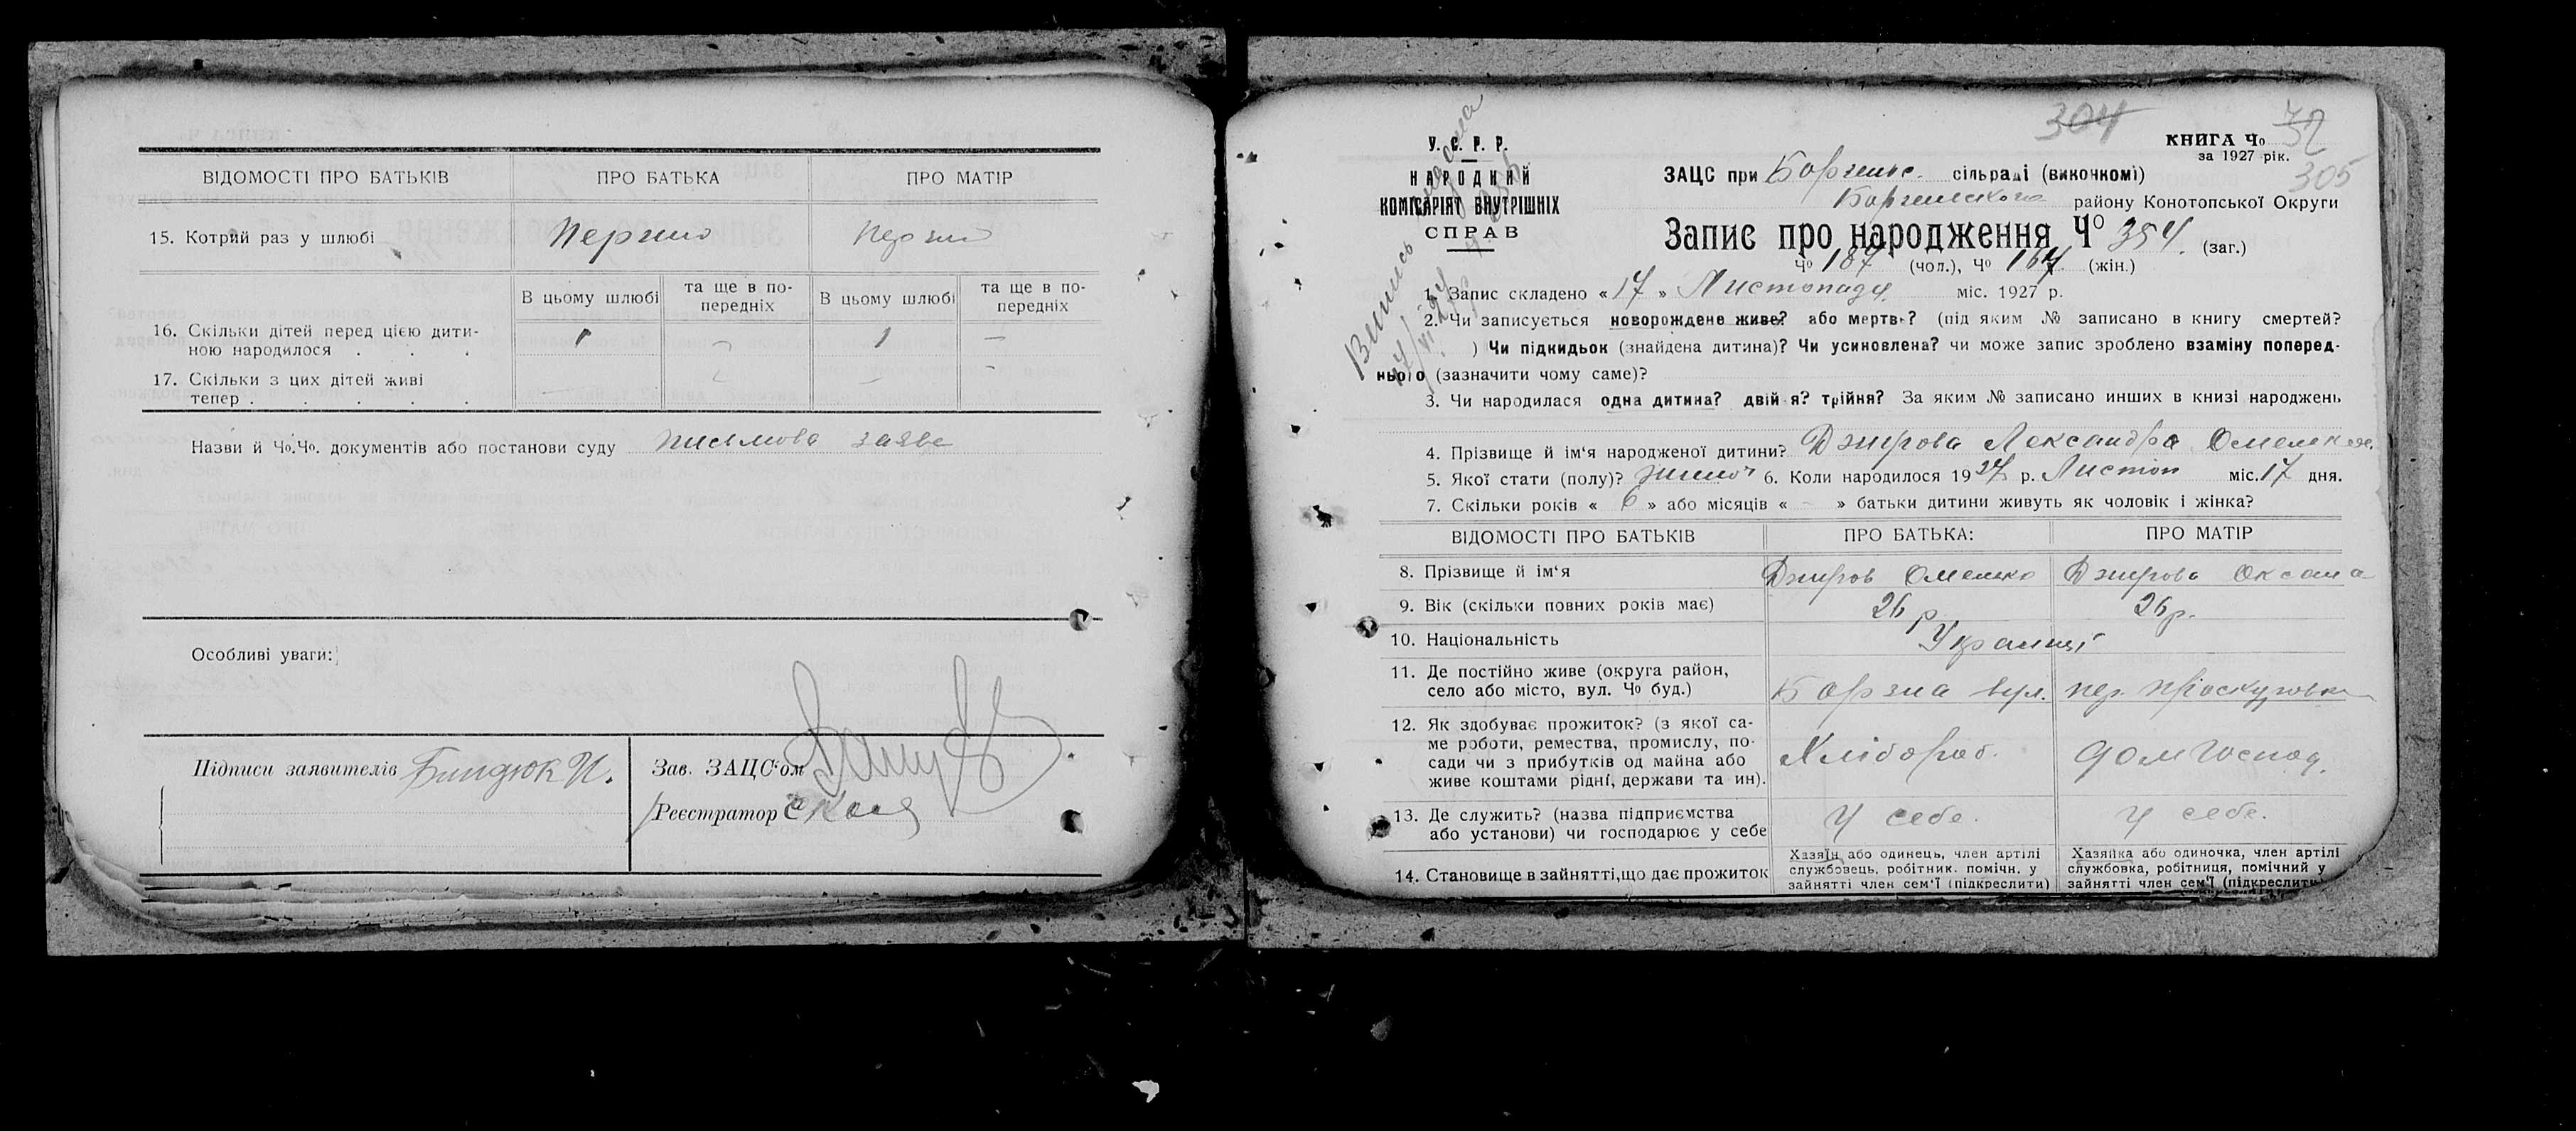 ВІДОМОСТІ ПРО БАТЬКІВ ПРО БАТЬКА ПРО МАТІР
15. Котрий раз у шлюбі Перший Перший
В цьому шлюбі та ще в по-передніх В цьому шлюбі та ще в по-передніх
16. Скільки дітей перед цією дити-
ною народилося . . . 1 — 1 —
17. Скільки з цих дітей живі
тепер . . . . . — — — —
Назви й Чо.Чо. документів або постанови суду письмова заява
Особливі уваги:
Підписи заявителів Биндюк И. Зав. ЗАЦС'ом
Реєстратор
304
У. С. Р. Р.
НАРОДНИЙ
КОМІСАРІЯТ ВНУТРІШНІХ
СПРАВ
Випись
КНИГА Чо 32
за 1927 рік.
305
ЗАЦС при Борзенс. сільраді (викочкомі)
Борзенського району Конотопської Округи
Запис про народження Чо 354. (заг.)
Чо 187 (чол.), Чо 167. (жін.)
1. Запис складено « 17 » Листопада міс. 1927 р.
2. Чи записується новорождене живе? або мертве? (під яким № записано в книгу смертей?
) Чи підкидьок (знайдена дитина)? Чи усиновлена? чи може запис зроблено взаміну поперед-
нього (зазначити чому саме)?
3. Чи народилася одна дитина? двійня? трійня? За яким № записано инших в книзі народжень
4. Прізвище й ім'я народженої дитини? Джирова Лександра Омельк.
5. Якої стати (полу)? жіноч 6. Коли народилося 1927 р. Листоп міс. 17 дня.
7. Скільки років « 6 » або місяців « – » батьки дитини живуть як чоловік і жінка?
ВІДОМОСТІ ПРО БАТЬКІВ ПРО БАТЬКА: ПРО МАТІР
8. Прізвище й ім'я Джиров Омелько Джирова Оксана
9. Вік (скільки повних років має) 26 р 26 р.
10. Національність Українці
11. Де постійно живе (округа район,
село або місто, вул. Чо буд.) Борзна вул. пер. Проскуровка
12. Як здобуває прожиток? (з якої са-
ме роботи, ремества, промислу, по-
сади чи з прибутків од майна або
живе коштами рідні, держави та ин). Хлібороб. дом господ.
13. Де служить? (назва підприємства
або установи) чи господарює у себе У себе. У себе.
14. Становище в зайнятті, що дає прожиток
Хазяїн або одинець, член артілі
службовець, робітник. помічн. у
зайнятті член сем'ї (підкреслити)
Хазяйка або одиночка, член артілі
службовка, робітниця, помічний у
зайнятті член сем'ї (підкреслити)